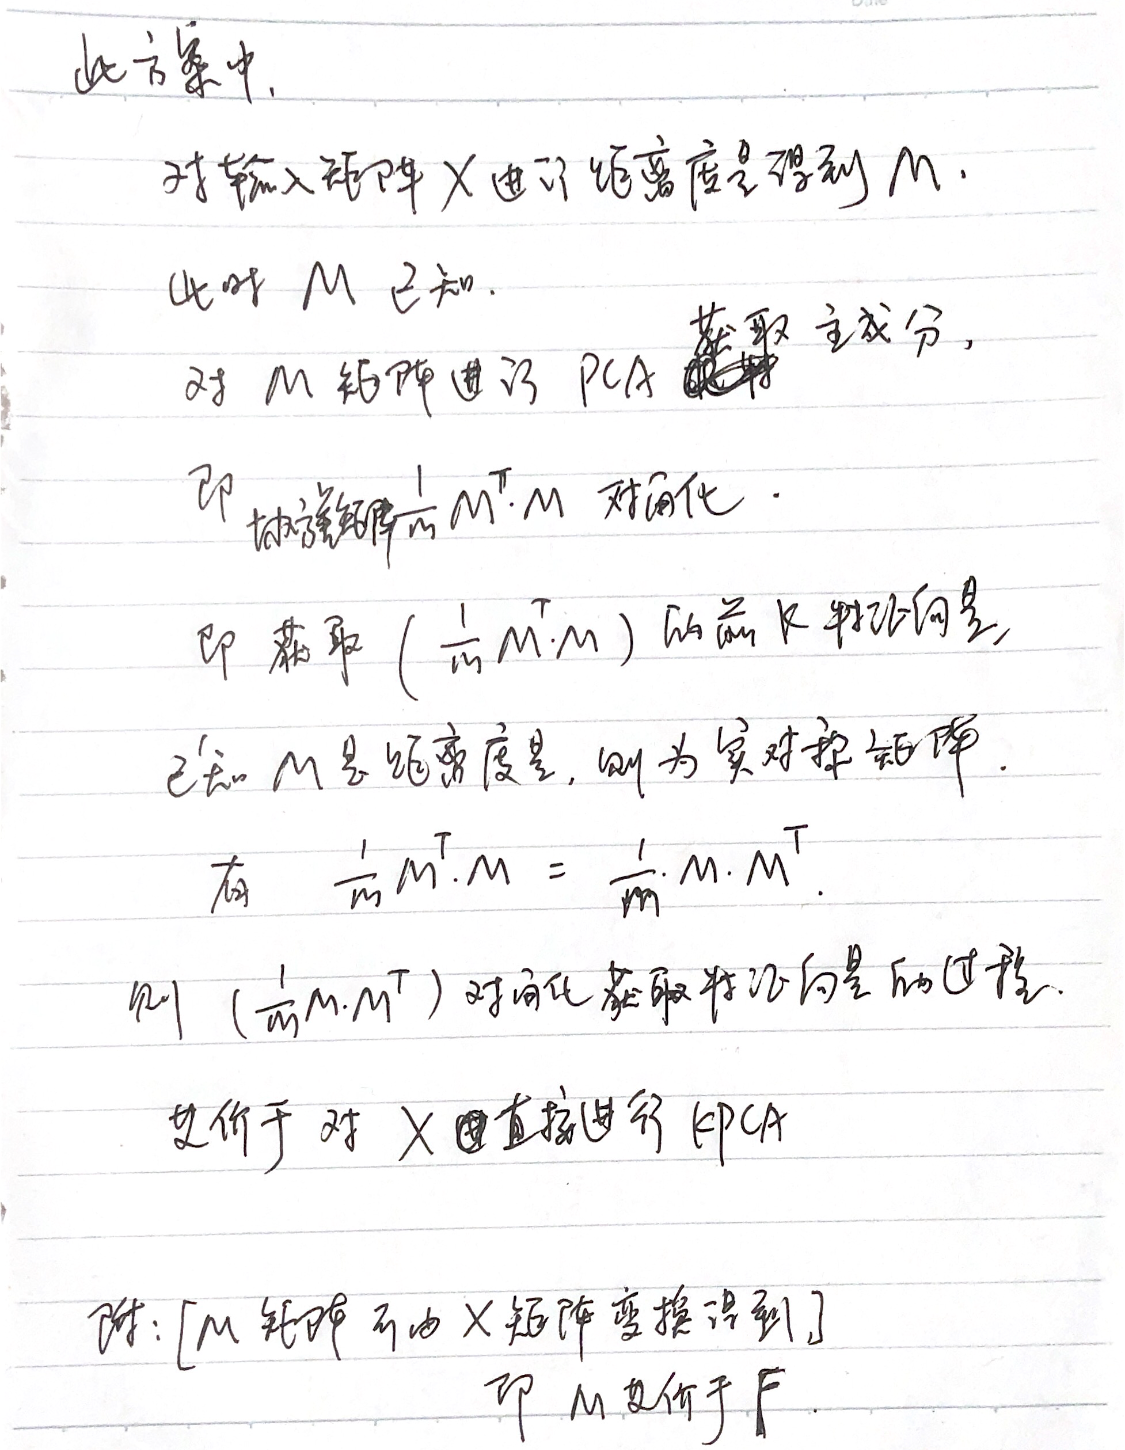 此方案中,
对输入矩阵 X 进行距离度量得到 M.
此时 M 已知.
对 M 矩阵进行 PCA 获取主成分,
即 协方差矩阵 1/m M^T·M 对角化.
即 获取 ( 1/m M^T·M ) 的前 K 特征向量,
已知 M 是距离度量, 则为实对称矩阵.
有 1/m M^T·M = 1/m·M·M^T.
则 ( 1/m M·M^T ) 对角化获取特征向量的过程.
等价于对 X 直接进行 KPCA
附: [M 矩阵可由 X 矩阵变换得到]
即 M 等价于 F.